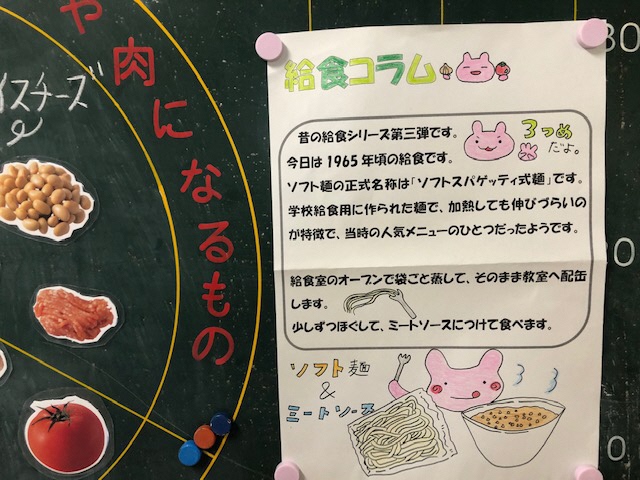 や肉になるもの
イスチーズ
給食コラム
3つめ
だよ。
昔の給食シリーズ第三弾です。
今日は1965年頃の給食です。
ソフト麺の正式名称は「ソフトスパゲッティ式麺」です。
学校給食用に作られた麺で、加熱しても伸びづらいの
が特徴で、当時の人気メニューのひとつだったようです。
給食室のオーブンで袋ごと蒸して、そのまま教室へ配缶
します。
少しずつほぐして、ミートソースにつけて食べます。
ソフト麺
&
ミートソース
80
20
0